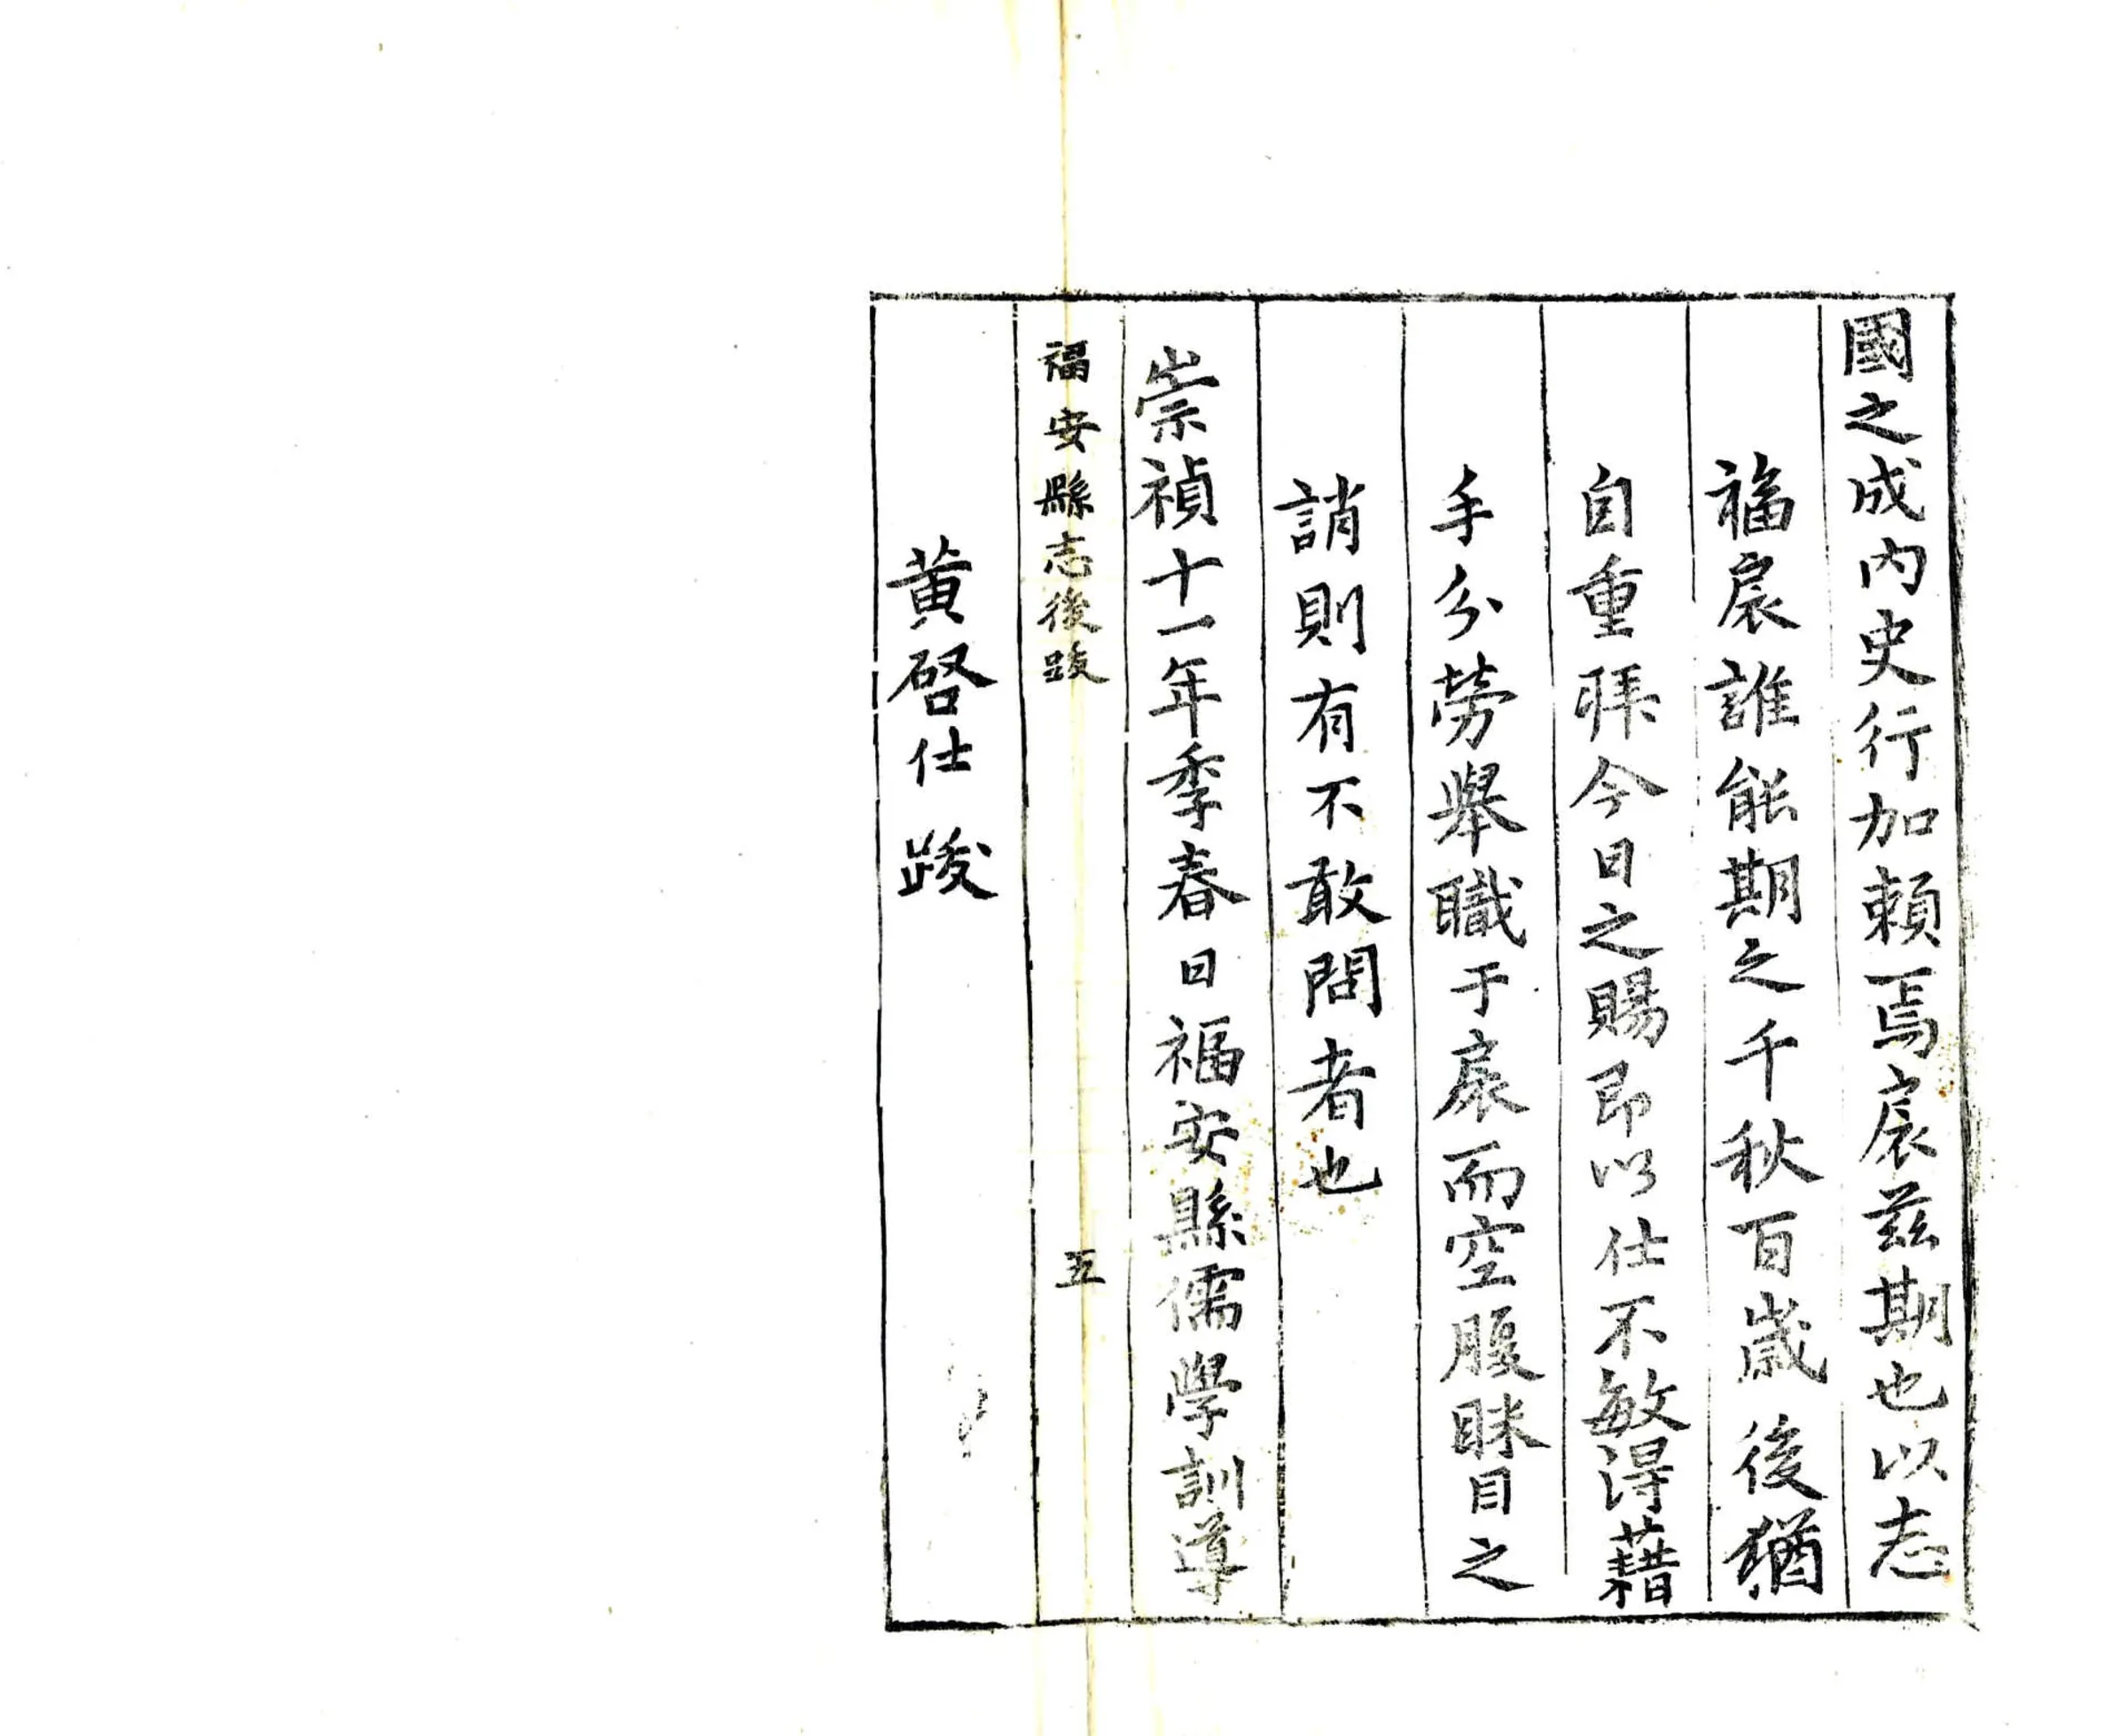 國之成内史行加賴焉扆兹期也以志
福扆誰能期之千秋百歲後猶
自重拜今日之賜即以仕不敏得藉
手分勞舉職于扆而空腹眯目之
誚則有不敢問者也
崇禎十一年季春日福安縣儒學訓導
福安縣志後跋 五
黃啓仕跋